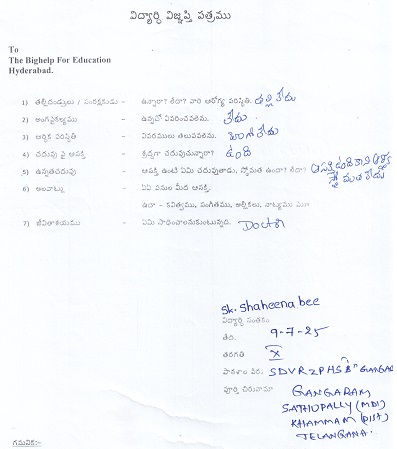 విద్యార్థి విజ్ఞప్తి పత్రము
To
The Bighelp For Education
Hyderabad.
1) తల్లిదండ్రులు / సంరక్షకుడు - ఉన్నారా? లేదా? వారి ఆరోగ్య పరిస్థితి. తల్లి లేరు
2) అంగవైకల్యము - ఉన్నచో వివరించవలెను. లేదు
3) ఆర్థిక పరిస్థితి - వివరములు తెలుపవలెను. బాగా లేదు
4) చదువు పై ఆసక్తి - శ్రద్ధగా చదువుచున్నారా? ఉంది
5) ఉన్నతచదువు - ఆసక్తి ఉంటే ఏమి చదువుతాడు. స్తోమత ఉందా? లేదా? ఆసక్తి ఉంది కాని ఆర్థిక
స్తోమత లేదు
6) అలవాట్లు - ఏఏ పనుల మీద ఆసక్తి.
ఉదా - కవిత్వము, సంగీతము, అల్లికలు, నాట్యము
7) జీవితాశయము - ఏమి సాధించాలనుకుంటున్నది. Doctor
Sk. Shaheena bee
విద్యార్థి సంతకం
తేది. 9-7-25
తరగతి X
పాఠశాల పేరు SDVRZPHS GANGAR
పూర్తి చిరునామా GANGARAM
SATHUPALLY (MDL)
KHAMMAM (DIST)
TELANGANA.
గమనిక:-